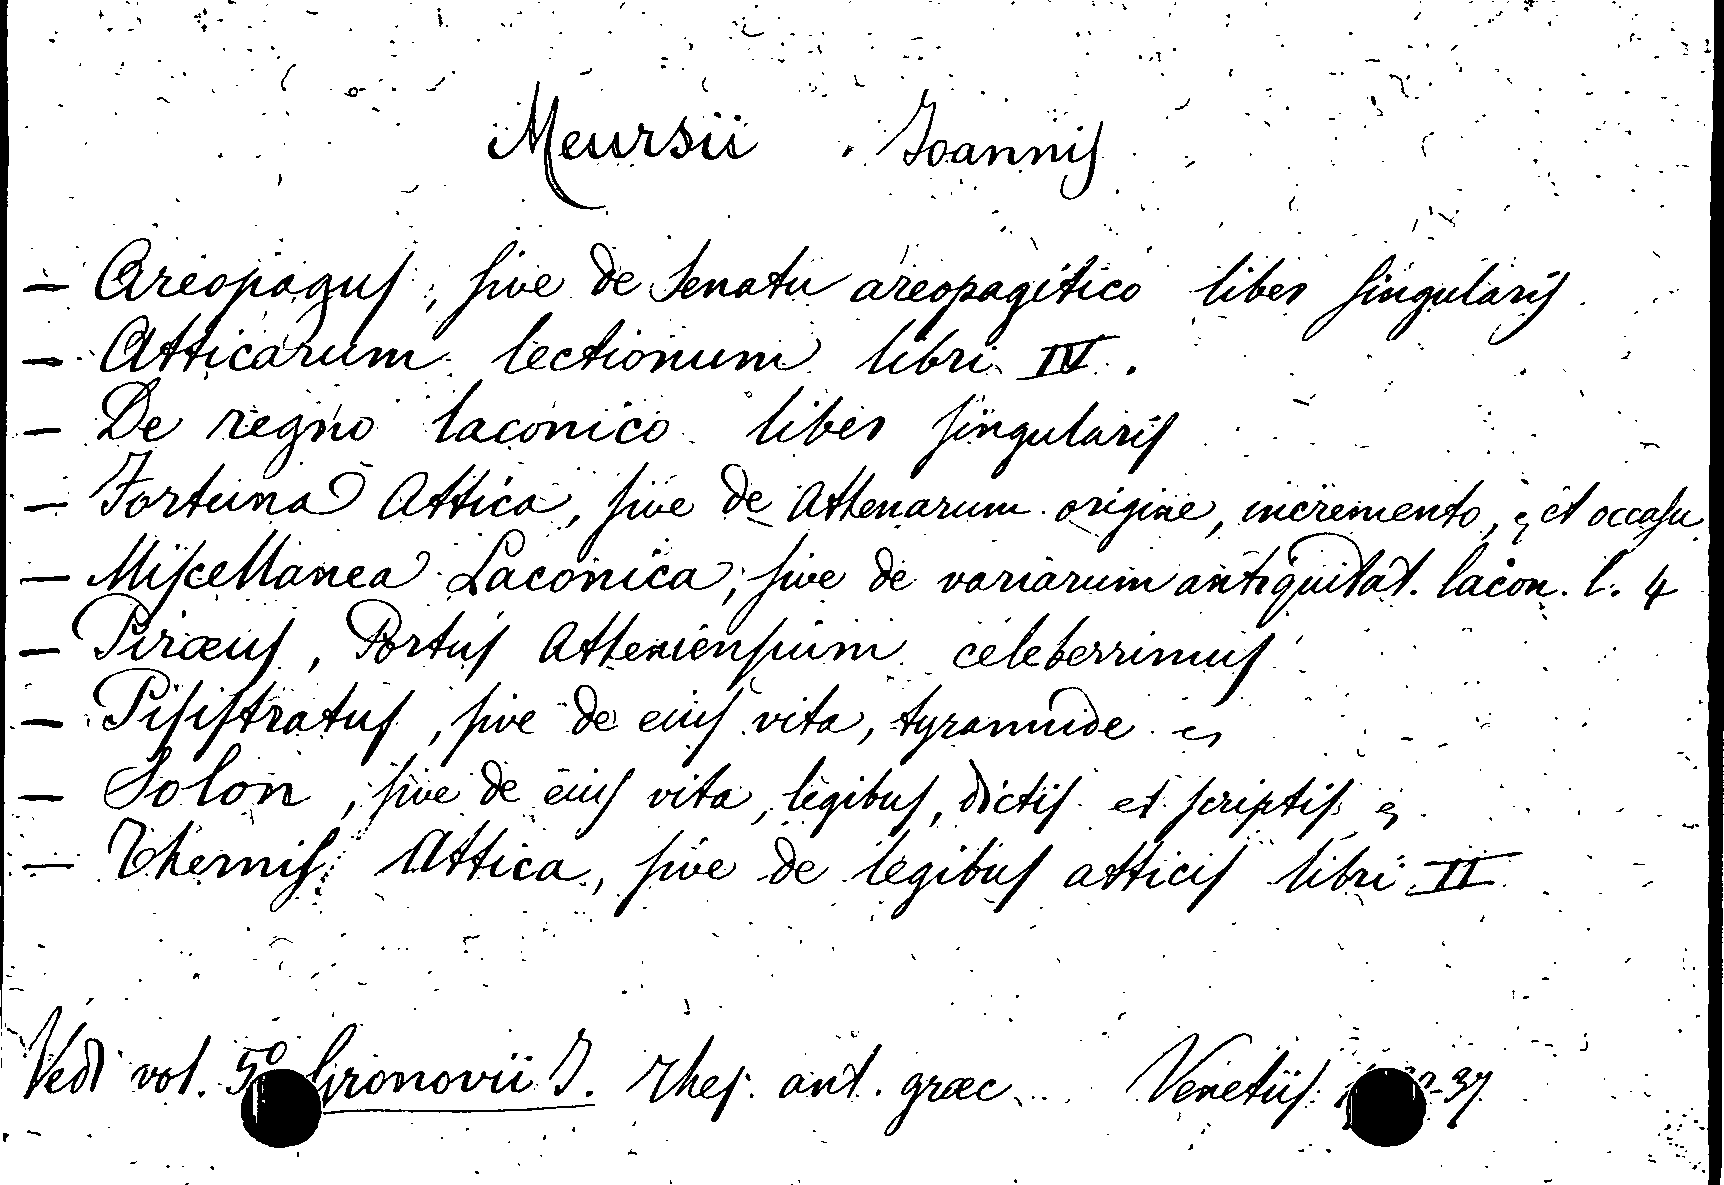 Meursii Joannis
— Areopagus, sive de Senatu areopagitico liber singularis
— Atticarum lectionum libri IV.
— De regno laconico liber singularis
— Fortuna Attica, sive de Athenarum origine, incremento, et occasu
— Miscellanea Laconica, sive de variarum antiquitat. lacon. l. 4
— Piræus, Portus Atheniensium celeberrimus
— Pisistratus, sive de eius vita, tyrannide
— Solon, sive de eius vita, legibus, dictis et scriptis
— Themis Attica, sive de legibus atticis libri II
Vedi vol. 5º Gronovii J. Thes. ant. græc Venetiis -37